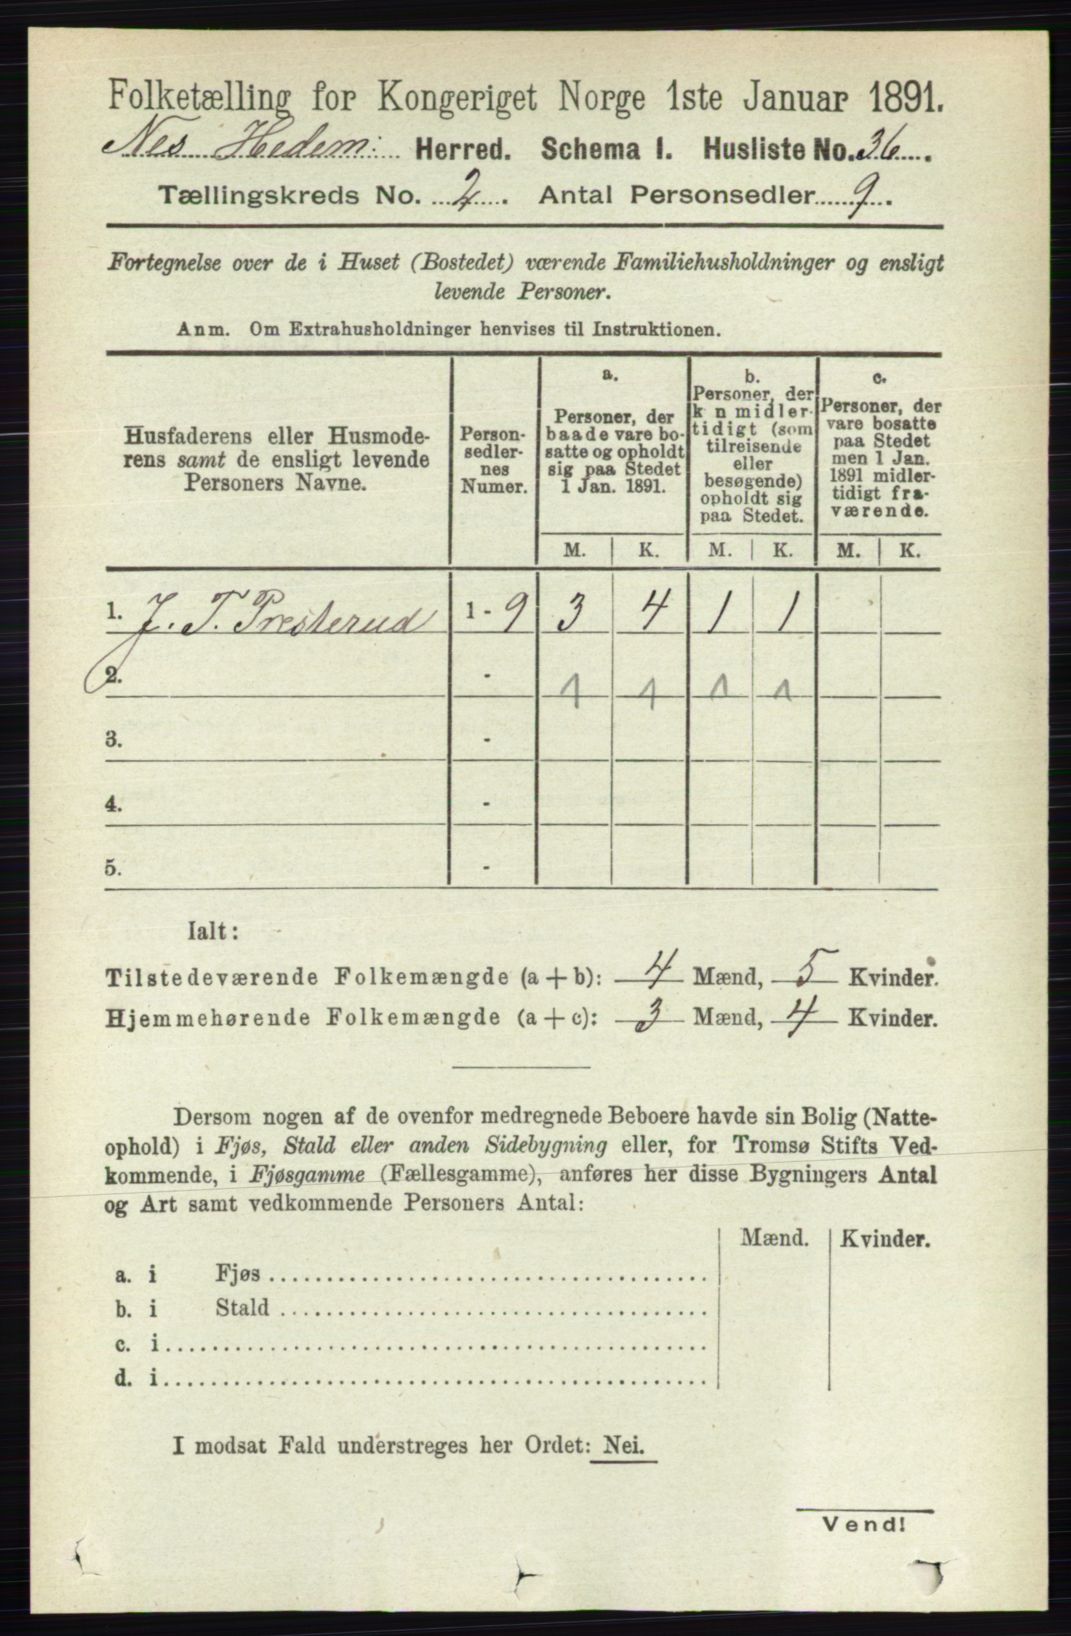 Folketælling for Kongeriget Norge 1ste Januar 1891.
Nes Hedem: Herred. Schema I. Husliste No. 36.
Tællingskreds No. 2. Antal Personsedler 9.
Fortegnelse over de i Huset (Bostedet) værende Familiehusholdninger og ensligt
levende Personer.
Anm. Om Extrahusholdninger henvises til Instruktionen.
Husfaderens eller Husmode-
rens samt de ensligt levende
Personers Navne.
Person-
sedler-
nes
Numer.
a.
Personer, der
baade vare bo-
satte og opholdt
sig paa Stedet
1 Jan. 1891.
b.
Personer, der
k n midler-
tidigt (som
tilreisende
eller
besøgende)
opholdt sig
paa Stedet.
c.
Personer, der
vare bosatte
paa Stedet
men 1 Jan.
1891 midler-
tidigt fra-
værende.
M. K. M. K. M. K.
1. J. T. Presterud 1 - 9 3 4 1 1
2. - 1 1 1 1
3. -
4. -
5. -
Ialt:
Tilstedeværende Folkemængde (a + b): 4 Mænd, 5 Kvinder.
Hjemmehørende Folkemængde (a + c): 3 Mænd, 4 Kvinder.
Dersom nogen af de ovenfor medregnede Beboere havde sin Bolig (Natte-
ophold) i Fjøs, Stald eller anden Sidebygning eller, for Tromsø Stifts Ved-
kommende, i Fjøsgamme (Fællesgamme), anføres her disse Bygningers Antal
og Art samt vedkommende Personers Antal:
Mænd. Kvinder.
a. i Fjøs
b. i Stald
c. i
d. i
I modsat Fald understreges her Ordet: Nei.
Vend!